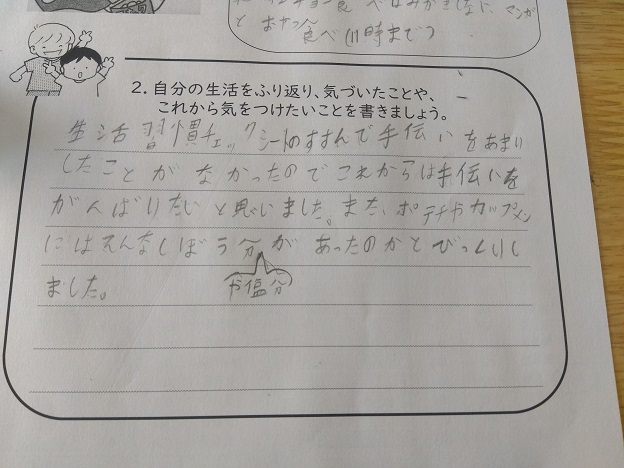 と おやつ
食べ(11時まで)
2. 自分の生活をふり返り、気づいたことや、
これから気をつけたいことを書きましょう。
生活習慣チェックシートのすすんで手伝いをあまり
したことがなかったのでこれからは手伝いを
がんばりたいと思いました。また、ポテチやカップメン
にはそんなしぼう分があったのかとびっくりし
ました。
や塩分